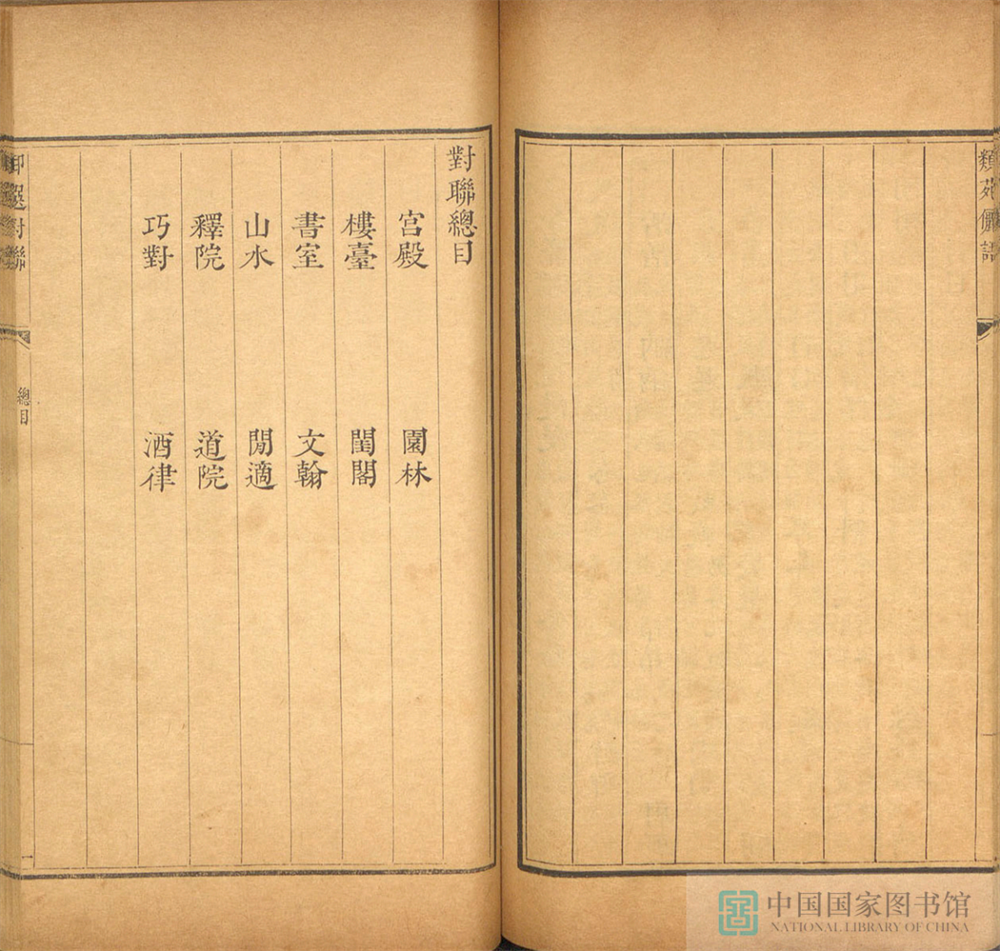 類苑儷語
對聯總目
宮殿 園林
樓臺 閨閣
書室 文翰
山水 閒適
釋院 道院
巧對 酒律
御選對聯
總目
一
中国国家图书馆
NATIONAL LIBRARY OF CHINA